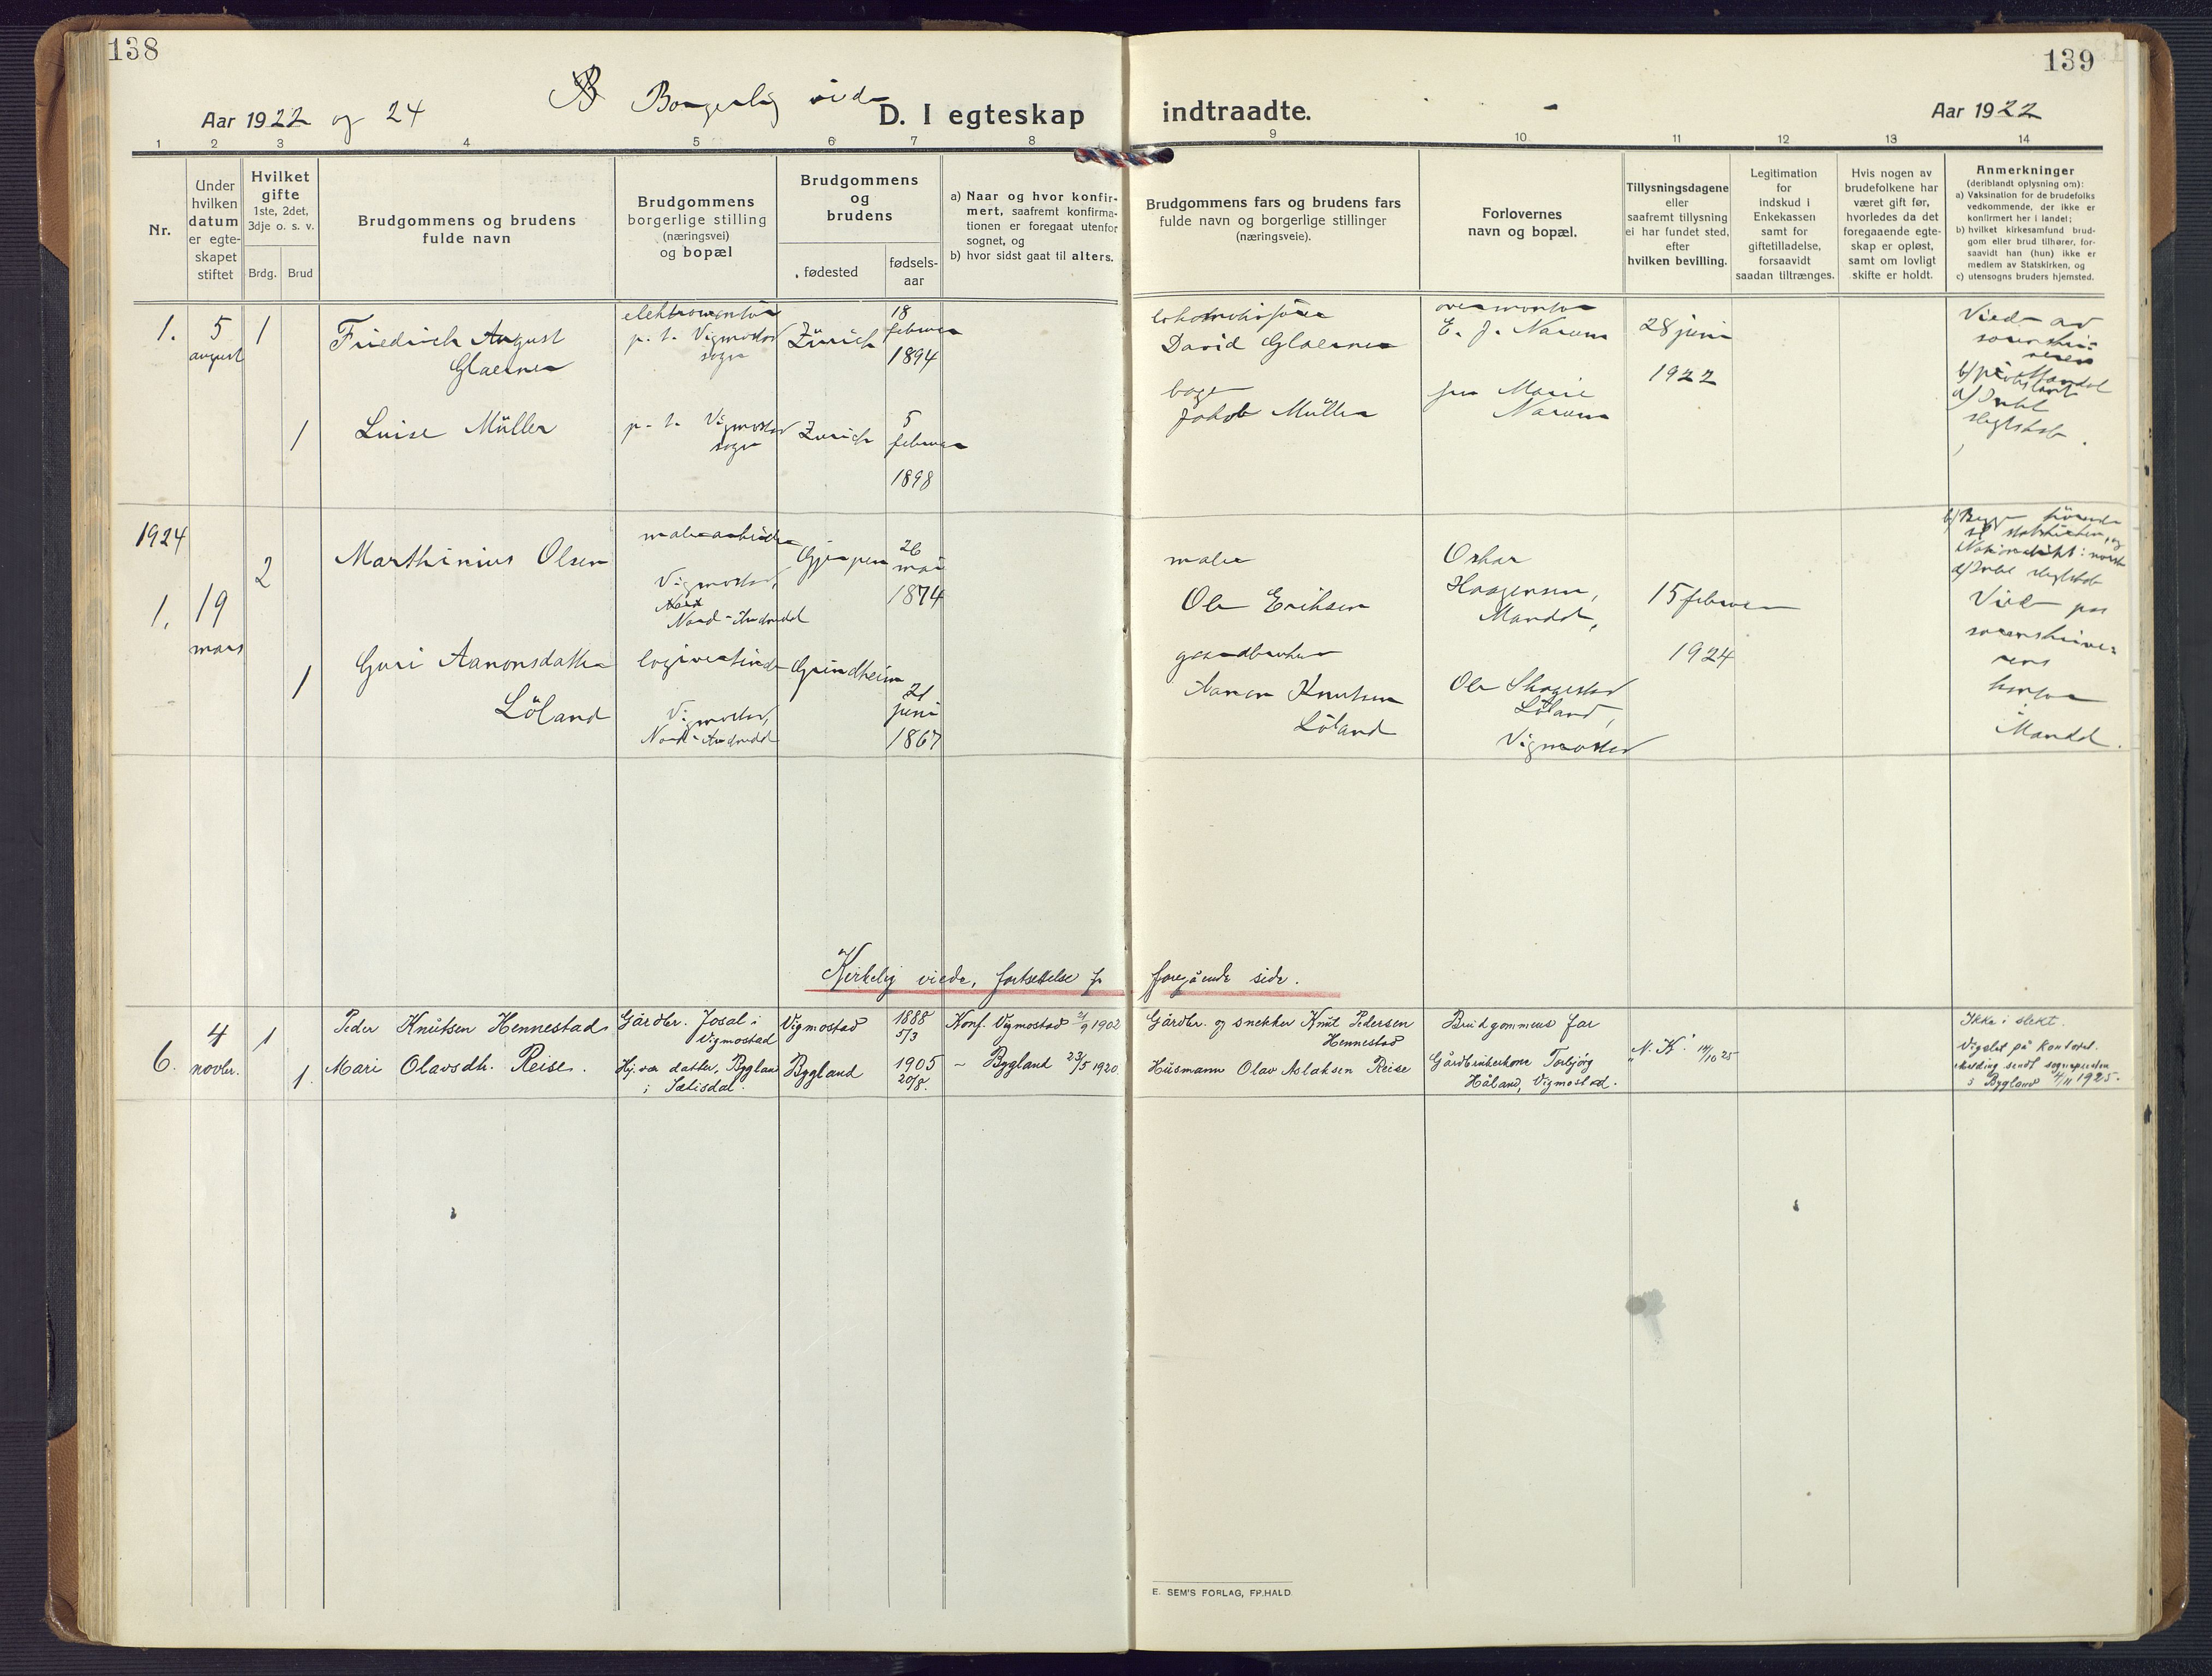 138
139
B Borgerlig viede
Aar 1922 og 24
D. I egteskap
indtraadte.
Aar 1922
1 2 3 4 5 6 7 8 9 10 11 12 13 14
Nr.
Under
hvilken
datum
er egte-
skapet
stiftet
Hvilket
gifte
1ste, 2det,
3dje o. s. v.
Brdg. Brud
Brudgommens og brudens
fulde navn
Brudgommens
borgerlige stilling
(næringsvei)
og bopæl
Brudgommens
og
brudens
fødested
fødsels-
aar
a) Naar og hvor konfir-
mert, saafremt konfirma-
tionen er foregaat utenfor
sognet, og
b) hvor sidst gaat til alters.
Brudgommens fars og brudens fars
fulde navn og borgerlige stillinger
(næringsveie).
Forlovernes
navn og bopæl.
Tillysningsdagene
eller
saafremt tillysning
ei har fundet sted,
efter
hvilken bevilling.
Legitimation
for
indskud i
Enkekassen
samt for
giftetilladelse,
forsaavidt
saadan tiltrænges.
Hvis nogen av
brudefolkene har
været gift før,
hvorledes da det
foregaaende egte-
skap er opløst,
samt om lovligt
skifte er holdt.
Anmerkninger
(deriblandt oplysning om):
a) Vaksination for de brudefolks
vedkommende, der ikke er
konfirmert her i landet;
b) hvilket kirkesamfund brud-
gom eller brud tilhører, for-
saavidt han (hun) ikke er
medlem av Statskirken, og
c) utensogns bruders hjemsted.
1.
5
august
1
Friedrich August
Glaerner
elektromontør
p. t. Vigmostad
sogn
Zürich
18
februar
1894
David Glaerner
E. J. Narum
28 juni
1922
Viede av
sorenskri-
veren
Mandal
slegtskab.
1
Luise Müller
p. t. Vigmostad
sogn
Zürich
5
februar
1898
Jakob Müller
fru Marie
Narum
1924
1.
19
mars
2
Marthinius Olsen
malerarbeider
Vigmostad,
Nord-Audnedal
Gjerpen
26
mai
1874
maler
Ole Eriksen
Oskar
Haagensen,
Mandal,
15 februar
1924
Viede paa
sorenskrive-
rens
kontor
i
Mandal.
1
Guri Aanonsdatter
Löland
logivertinde
Vigmostad,
Nord-Audnedal
Grindheim
21
juni
1867
gaardbruker
Aanon Knutsen
Löland
Ole Skagestad
Löland,
Vigmostad
Kirkelig viede, fortsettelse fr foregående side.
6.
4
novbr.
1
Peder Knutsen Hennestad
Gårdbr. Josal i
Vigmostad
Vigmostad
1888
5/3
Konf. Vigmostad 21/9 1902
Gårdbr. og snekker Knut Pedersen
Hennestad
Brudgommens far
N. K. 14/10 25
Ikke i slekt.
Vigslet på kontoret.
Melding sendt sognepresten
i Bygland 4/11 1925.
1.
Mari Olavsdtr. Reise.
Hj.vær. datter, Bygland
i Sætisdal.
Bygland
1905
20/8.
~ Bygland 23/5 1920
Husmann Olav Aslaksen Reise
Gårdbrukerkone Torbjörg
Håland, Vigmostad.
E. SEM'S FORLAG, FR.HALD.